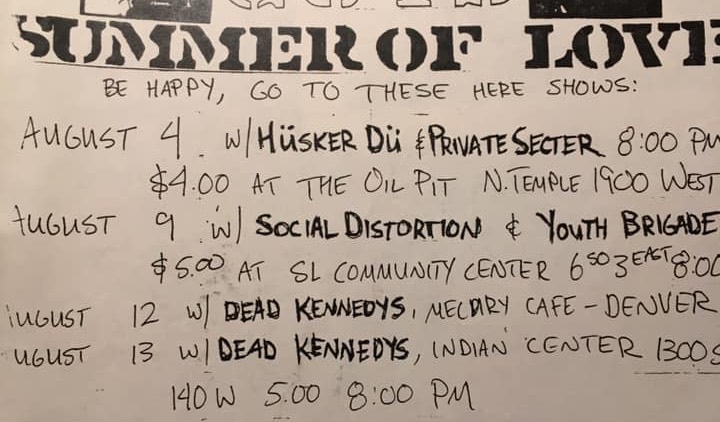 SUMMER OF LOVE
BE HAPPY, GO TO THESE HERE SHOWS:
AUGUST 4 w/ HÜSKER DÜ & PRIVATE SECTER 8:00 PM
$4.00 AT THE OIL PIT N. TEMPLE 1900 WEST
AUGUST 9 w/ SOCIAL DISTORTION & YOUTH BRIGADE
$5.00 AT SL COMMUNITY CENTER 6 SO 3 EAST 8:00
AUGUST 12 w/ DEAD KENNEDYS, CAFE - DENVER
UGUST 13 w/ DEAD KENNEDYS, INDIAN CENTER 1300 S
140 W 5.00 8:00 PM